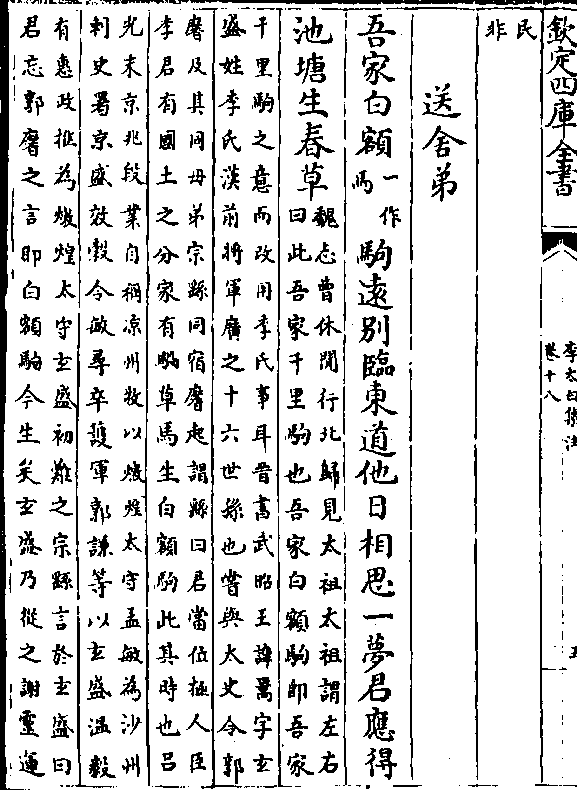 欽定四庫全書
李太白集注
卷十八
五
民
非
送舍弟
吾家白額一作馬駒遠别臨東道他日相思一夢君應得
池塘生春草魏志曹休閒行北歸見太祖太祖謂左右
曰此吾家千里駒也吾家白額駒即吾家
千里駒之意而改用李氏事耳晉書武昭王諱暠字玄
盛姓李氏漢前將軍廣之十六世孫也嘗與太史令郭
黁及其同母弟宗繇同宿黁起謂繇曰君當位極人臣
李君有國土之分家有騧草馬生白額駒此其時也呂
光末京兆段業自稱涼州牧以燉煌太守孟敏為沙州
刺史署玄盛效穀令敏尋卒護軍郭謙等以玄盛温毅
有惠政推為燉煌太守玄盛初難之宗繇言於玄盛曰
君忘郭黁之言即白額駒今生矣玄盛乃從之謝靈運